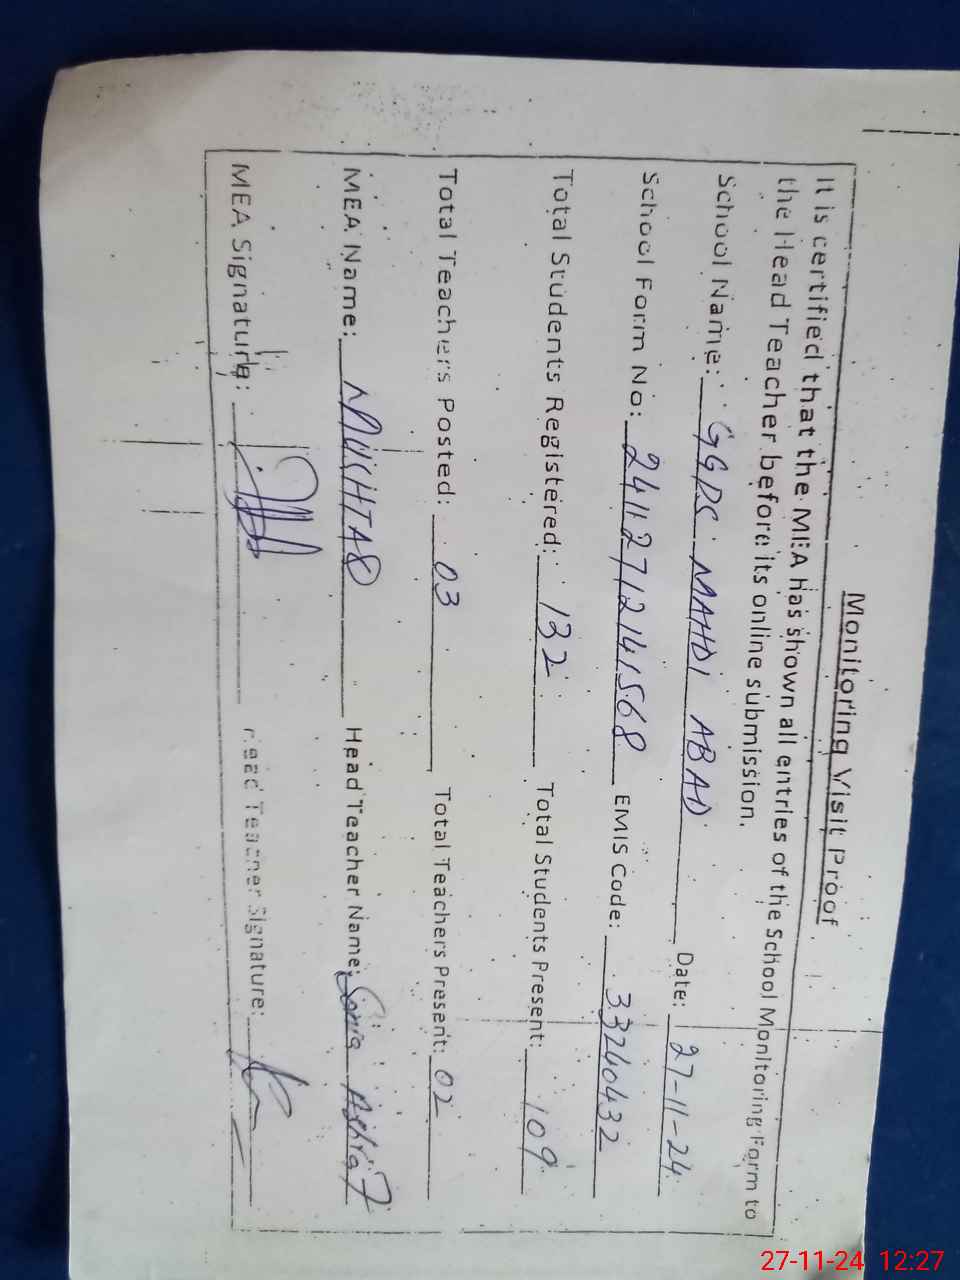 Monitoring Visit Proof
It is certified that the MEA has shown all entries of the School Monitoring Form to
the Head Teacher before its online submission.
School Name: GGPS MAHDI ABAD Date: 27-11-24
School Form No: 24112712141568 EMIS Code: 33240432
Total Students Registered: 132 Total Students Present: 109
Total Teachers Posted: 03 Total Teachers Present: 02
MEA Name: MUKHTAR Head Teacher Name: Sonia Ashraf
MEA Signature: Head Teacher Signature:
27-11-24 12:27